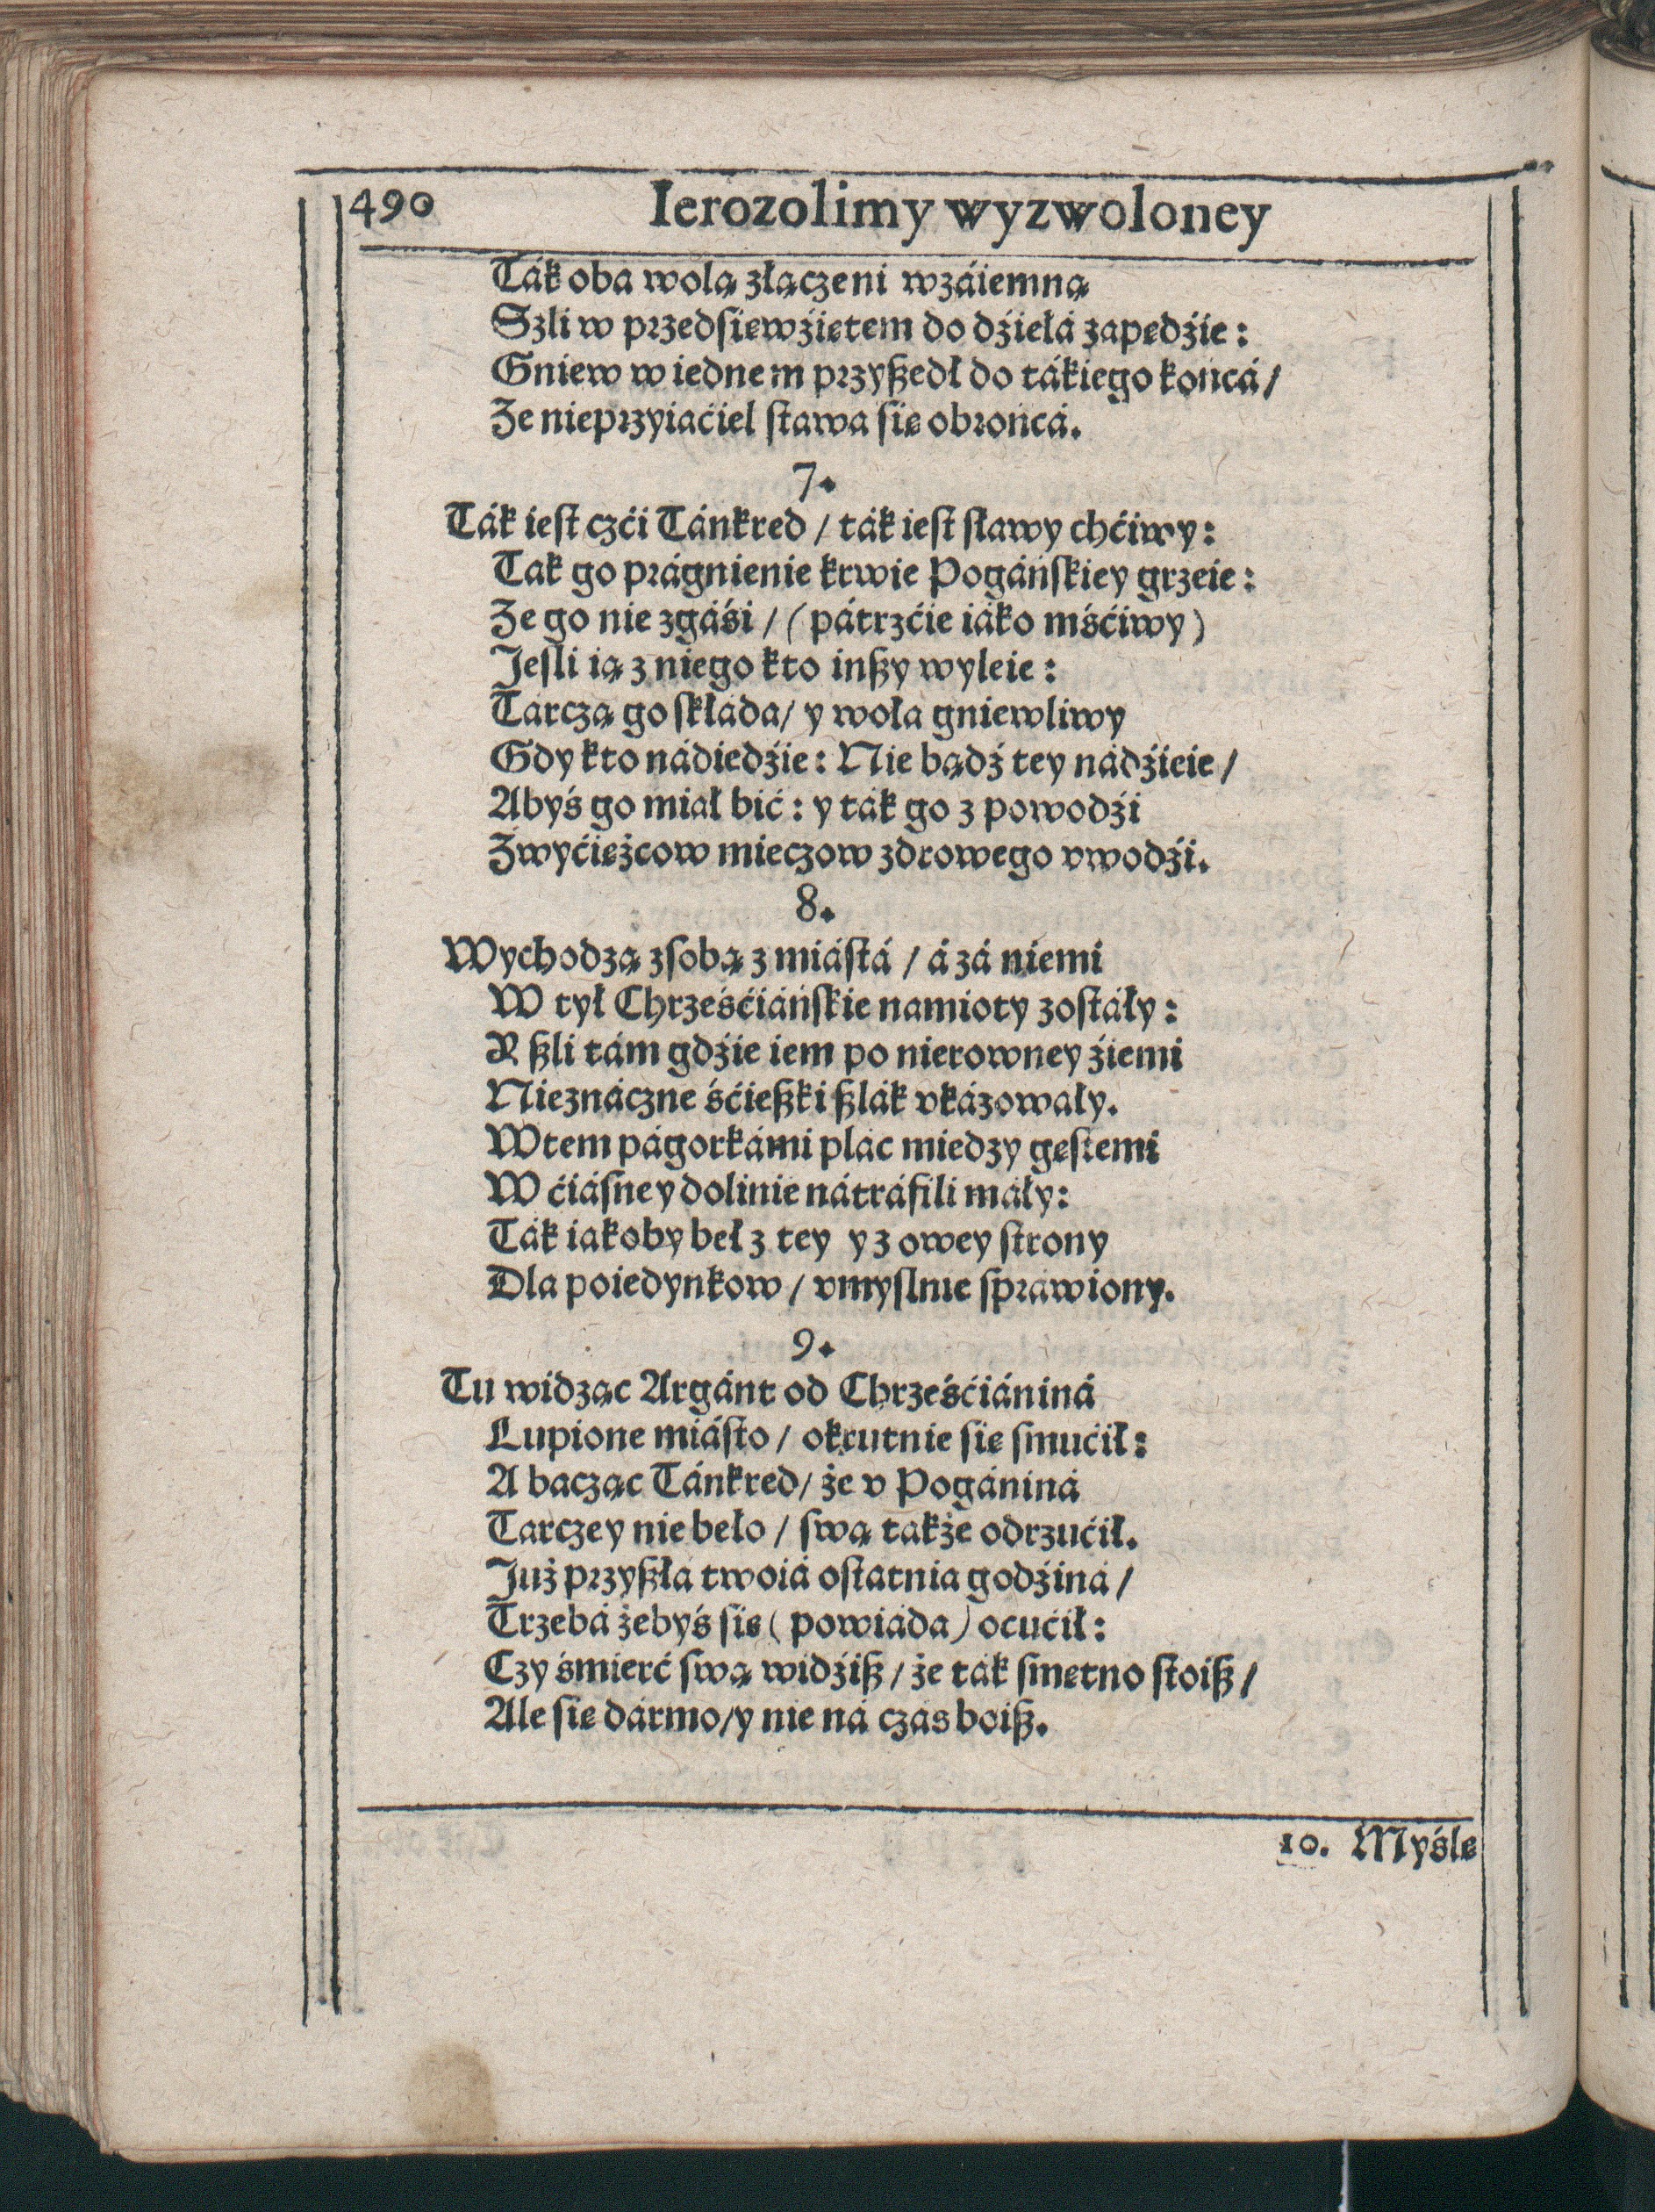 490 Ierozolimy wyzwoloney
Ták oba wolą złączeni wzáiemną
Szli w przedsięwźiętem do dźiełá zapędźie:
Gniew w iednem przyßedł do tákiego końcá/
Ze nieprzyiaćiel ſtawa ſię obrońcá.
7.
Ták ieſt czći Tánkred / ták ieſt ſławy chćiwy:
Tak go prágnienie krwie Pogáńſkiey grzeie:
Ze go nie zgáśi / (pátrzćie iáko mśćiwy)
Jeſli ią z niego kto inßy wyleie:
Tarczą go ſkłada/ y woła gniewliwy
Gdy kto nádiedźie: Nie bądź tey nádźieie/
Abyś go miał bić: y ták go z powodźi
Zwyćiężcow mieczow zdrowego vwodźi.
8.
Wychodzą zſobą z miáſtá / á zá niemi
W tył Chrześćiáńſkie namioty zoſtáły:
Y ßli tám gdźie iem po nierowney źiemi
Nieznáczne śćießki ßlák vkázowały.
Wtem págorkámi plác miedzy gęſtemi
W ćiáſney dolinie nátráfili mały:
Ták iakoby beł z tey y z owey ſtrony
Dla poiedynkow / vmyſlnie ſprawiony.
9.
Tu widząc Argánt od Chrześćiániná
Lupione miáſto / okrutnie ſię ſmućił:
A bacząc Tánkred/ że v Pogániná
Tarczey nie beło / ſwą także odrzućił.
Już przyßła twoiá oſtatnia godźiná/
Trzebá żebyś ſię (powiáda) ocućił:
Czy śmierć ſwą widźiß/ że ták ſmętno ſtoiß/
Ale ſię dármo/y nie ná czás boiß.
10. Myślę